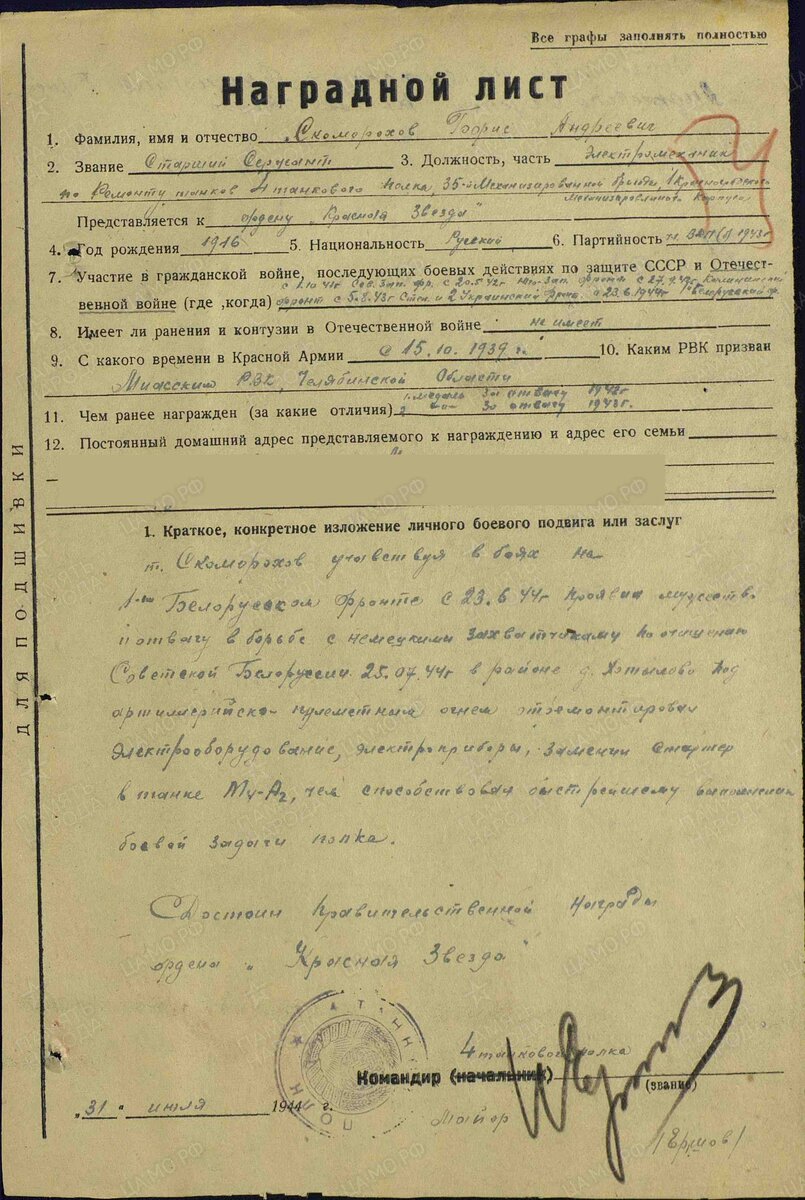 Все графы заполнять полностью
Наградной лист
1. Фамилия, имя и отчество Скоморохов Борис Андреевич
2. Звание Старший Сержант 3. Должность, часть Электромеханик
по Ремонту танков 4 танкового полка, 35-й Механизированной бригады, 1 Краснознаменного
Механизированного Корпуса
Представляется к ордену „Красная Звезда"
4. Год рождения 1916 5. Национальность Русский 6. Партийность ВКП(б) 1943г
7. Участие в гражданской войне, последующих боевых действиях по защите СССР и Отечест-
Сев. Зап. фр. с 20.5.42г Юго-Зап. фронт с 27.9.42г Калининский
венной войне (где, когда) фронт с 5.8.43г Степ. и 2 Украинский фронт с 23.6.1944г 1 Белорусский ф.
8. Имеет ли ранения и контузии в Отечественной войне не имеет
9. С какого времени в Красной Армии с 15.10.1939г. 10. Каким РВК призван
Миасским РВК, Челябинской Области
1. медаль За отвагу 1942г
11. Чем ранее награжден (за какие отличия) 2 -"- За отвагу 1943г.
12. Постоянный домашний адрес представляемого к награждению и адрес его семьи
1. Краткое, конкретное изложение личного боевого подвига или заслуг
т. Скоморохов участвуя в боях на
1-ом Белорусском фронте с 23.6.44г проявил мужество
и отвагу в борьбе с немецкими захватчиками по очищению
Советской Белоруссии. 25.07.44г в районе д. Хотылово под
артиллерийско-пулеметным огнем отремонтировал
электрооборудование, электроприборы, заменил стартер
в танке М4-А2, чем способствовал быстрейшему выполнению
боевой задачи полка.
Достоин Правительственной награды
ордена „Красная Звезда"
4 танкового полка
Командир (начальник)
(звание)
„31" июля 1944 г.
Майор
/Ершов/
ДЛЯ ПОДШИВКИ
ЦАМО.РФ